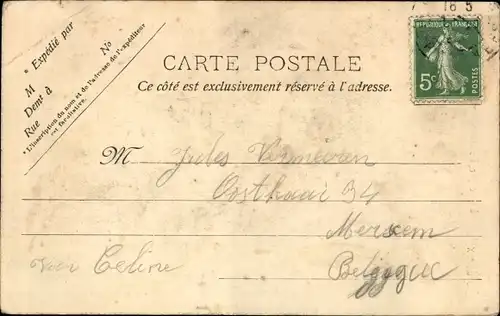 * Expédié par
M
Demt à
Rue
No
* L'inscription du nom et de l'adresse de l'expéditeur
est facultative.
CARTE POSTALE
Ce côté est exclusivement réservé à l'adresse.
REPUBLIQUE FRANÇAISE
5c
POSTES
16 5
M Jules Vermeiren
Oostkaai 34
Merxem
Belgique
von Celine